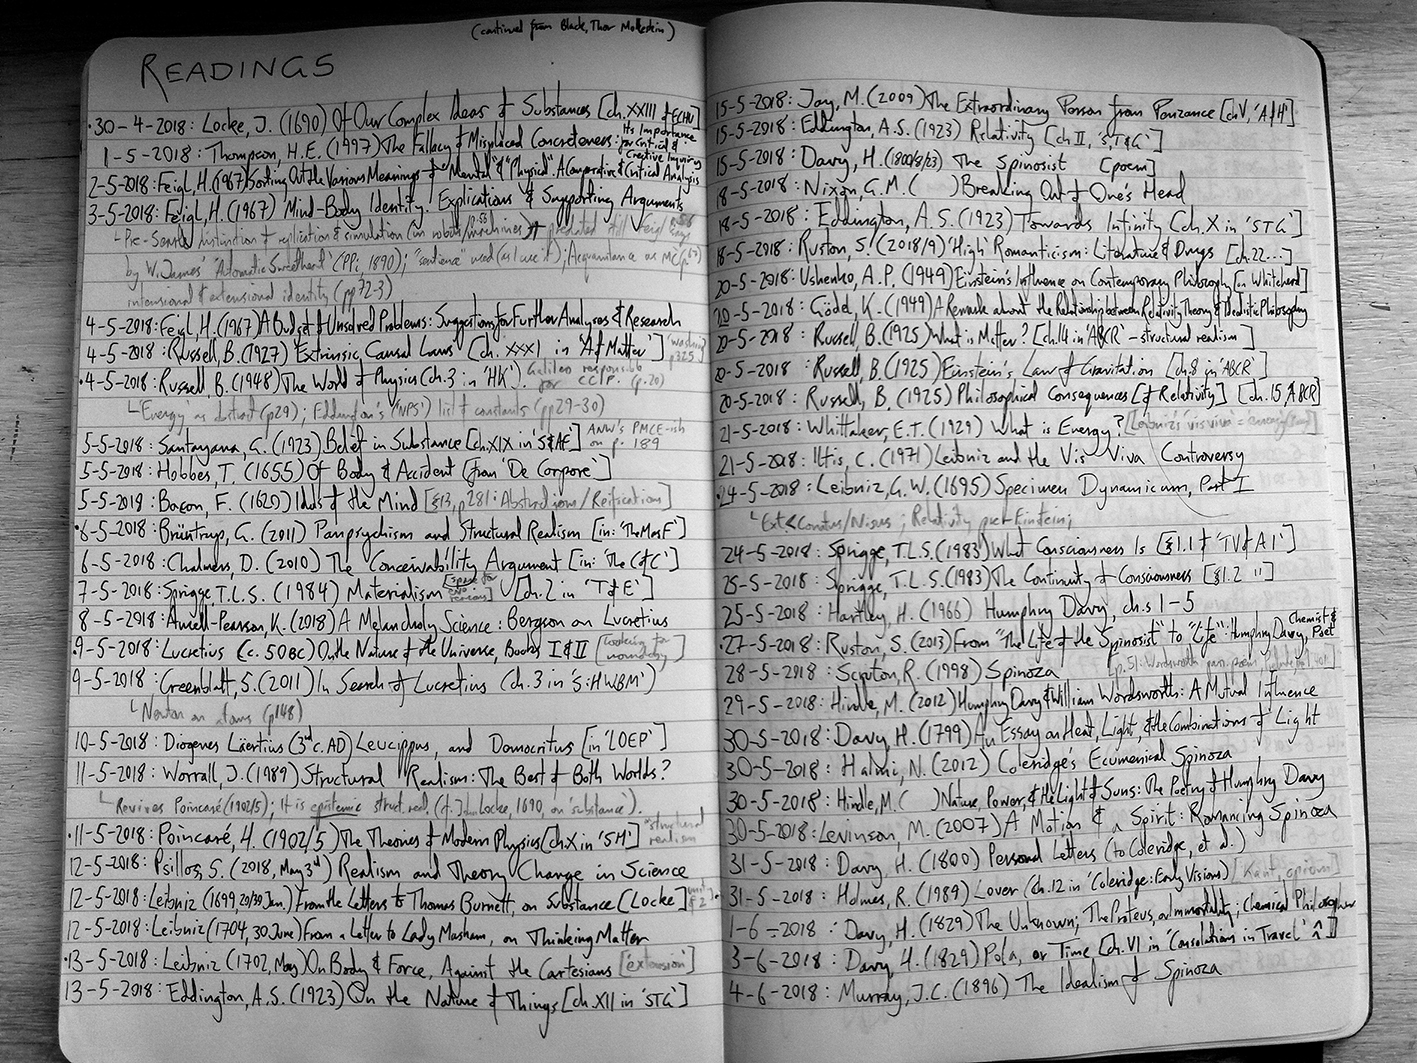 (continued from Black, Thor Moleskin)
READINGS
30-4-2018: Locke, J. (1690) Of Our Complex Ideas of Substances [ch.XXIII of ECHU]
1-5-2018: Thompson, H.E. (1997) The Fallacy of Misplaced Concreteness: Its Importance for Critical & Creative Inquiry
2-5-2018: Feigl, H. (1967) Sorting Out the Various Meanings of "Mental" & "Physical". A Comparative & Critical Analysis
3-5-2018: Feigl, H. (1967) Mind-Body Identity: Explications & Supporting Arguments
Pre-Searle distinction of replication & simulation (in robots/machines) predated still Feigl
by W. James' 'Automatic Sweetheart' (PPi, 1890); "sentience" used (as I use it); Acquaintance as MC
intensional & extensional identity (pp72-3)
4-5-2018: Feigl, H. (1967) A Budget of Unsolved Problems: Suggestions for Further Analyses & Research
4-5-2018: Russell, B. (1927) 'Extrinsic Causal Laws' [ch. XXXI in 'A of Matter'] p325
4-5-2018: Russell B. (1948) The World of Physics (ch.3 in 'HK'). Galileo responsible for CCIP. (p.20)
Energy as abstract (p29); Eddington's ('NPS') list of constants (pp29-30)
5-5-2018: Santayana, G. (1923) Belief in Substance [ch.XIX in S&AF] ANW's PMCE-ish on p. 189
5-5-2018: Hobbes, T. (1655) Of Body & Accident (from 'De Corpore')
5-5-2018: Bacon, F. (1620) Idols of the Mind [§13, p281: Abstractions/Reifications]
6-5-2018: Brüntrup, G. (2011) Panpsychism and Structural Realism [in: 'The M as F']
6-5-2018: Chalmers, D. (2010) The Conceivability Argument [in: The C of C']
7-5-2018: Sprigge, T.L.S. (1984) Materialism [ch.2 in 'T of E']
8-5-2018: Ansell-Pearson, K. (2018) A Melancholy Science: Bergson on Lucretius
9-5-2018: Lucretius (c. 50BC) On the Nature of the Universe, Books I & II [looking for]
9-5-2018: Greenblatt, S. (2011) In Search of Lucretius (ch.3 in 'S:HWBM')
Newton on atoms (p148)
10-5-2018: Diogenes Läertius (3rd c. AD) Leucippus, and Democritus [in 'LOEP']
11-5-2018: Worrall, J. (1989) Structural Realism: The Best of Both Worlds?
Revives Poincaré (1902/5); it is epistemic struct. real. (cf. John Locke, 1690, on 'substance').
11-5-2018: Poincaré, H. (1902/5) The Theories of Modern Physics [ch.X in 'SH'] "structural realism
12-5-2018: Psillos, S. (2018, May 3rd) Realism and Theory Change in Science
12-5-2018: Leibniz (1699, 20/30 Jan.) From the Letters to Thomas Burnett, on Substance [Locke]
12-5-2018: Leibniz (1704, 30 June) From a Letter to Lady Masham, on Thinking Matter
13-5-2018: Leibniz (1702, May) On Body & Force, Against the Cartesians ['extension']
13-5-2018: Eddington, A.S. (1923) On the Nature of Things [ch.XII in 'STG']
15-5-2018: Jay, M. (2009) The Extraordinary Person from Penzance [ch V, 'A of H']
15-5-2018: Eddington, A.S. (1923) Relativity [ch II, 'S,T&G']
15-5-2018: Davy, H. (1800/8/63) The Spinosist [poem]
18-5-2018: Nixon, G.M. ( ) Breaking Out of One's Head
18-5-2018: Eddington, A.S. (1923) Towards Infinity (ch.X in 'STG']
18-5-2018: Ruston, S. (2018/9) 'High' Romanticism: Literature & Drugs [ch.22...]
20-5-2018: Ushenko, A.P. (1949) Einstein's Influence on Contemporary Philosophy [in Whitehead]
20-5-2018: Gödel, K. (1949) A Remark about the Relationship between Relativity Theory & Idealistic Philosophy
20-5-2018: Russell B. (1925) What is Matter? [ch.14 in 'ABCR' - structural realism]
20-5-2018: Russell, B. (1925) Einstein's Law of Gravitation [ch.8 in 'ABCR']
20-5-2018: Russell, B. (1925) Philosophical Consequences [of Relativity] [ch.15, ABCR]
21-5-2018: Whittaker, E.T. (1929) What is Energy? [Leibniz's 'vis viva' = energy]
21-5-2018: Iltis, C. (1971) Leibniz and the Vis Viva Controversy
24-5-2018: Leibniz, G.W. (1695) Specimen Dynamicum, Part I
Ext < Conatus/Nisus; Relativity pre-Einstein;
24-5-2018: Sprigge, T.L.S. (1983) What Consciousness Is [§1.1 of 'TV of A1']
25-5-2018: Sprigge, T.L.S. (1983) The Continuity of Consciousness [§1.2 "]
25-5-2018: Hartley, H. (1966) Humphry Davy, ch.s 1-5
27-5-2018: Ruston, S. (2013) From "The Life of the Spinosist" to "Life": Humphry Davy, Chemist & Poet
28-5-2018: Scruton, R. (1998) Spinoza
29-5-2018: Hindle, M. (2012) Humphry Davy & William Wordsworth: A Mutual Influence
30-5-2018: Davy, H. (1799) An Essay on Heat, Light, & the Combinations of Light
30-5-2018: Halmi, N. (2012) Coleridge's Ecumenical Spinoza
30-5-2018: Hindle, M. ( ) Nature, Power, & the Light of Suns: The Poetry of Humphry Davy
30-5-2018: Levinson, M. (2007) A Motion & a Spirit: Romancing Spinoza
31-5-2018: Davy, H. (1800) Personal Letters (to Coleridge, et al.)
31-5-2018: Holmes, R. (1989) Lover (ch.12 in 'Coleridge: Early Visions) [Kant, opium]
1-6-2018: Davy, H. (1829) The Unknown; The Proteus, or Immortality; Chemical Philosopher
3-6-2018: Davy, H. (1829) Pola, or Time [ch.VI in 'Consolations in Travel']
4-6-2018: Murray, J.C. (1896) The Idealism of Spinoza